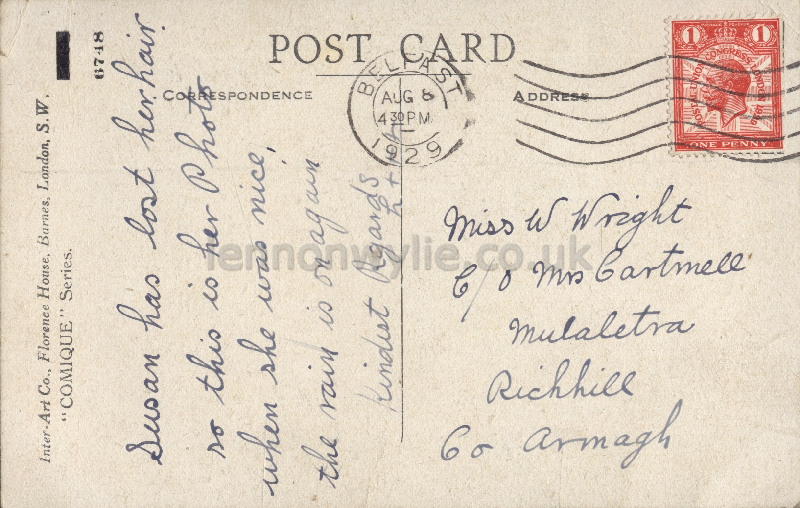 POST CARD
CORRESPONDENCE
ADDRESS
BELFAST
AUG 8
4 30 PM
1929
1 1
POSTAL UNION CONGRESS LONDON 1929
ONE PENNY
Susan has lost her hair
so this is her Photo
when she was nice,
the rain is on again
Kindest Regards
Miss W Wright
C/O Mrs Cartmell
Mulaletra
Richhill
Co Armagh
6748
Inter-Art Co., Florence House, Barnes, London, S.W.
"COMIQUE" Series.
lennonwylie.co.uk